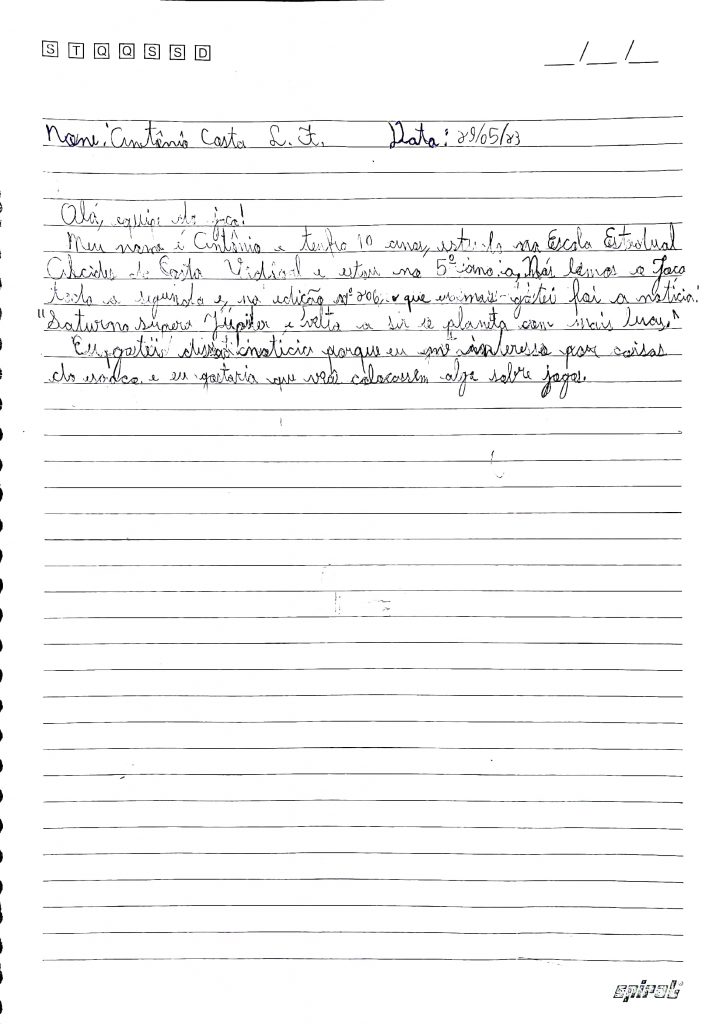 S T Q Q S S D
__/__/__
Nome: Antônio Costa L. F. Data: 29/05/23
Olá, equipe do joca!
Meu nome é Antônio e tenho 10 anos, estudo na Escola Estadual
Alcides da Costa Vidigal e estou no 5º ano a, Nós lemos o Joca
toda a segunda e, na edição nº 206, o que eu mais gostei foi a notícia:
"Saturno supera Júpiter e volta a ser o planeta com mais luas."
Eu gostei dessa noticia porque eu me interesso por coisas
do espaço e eu gostaria que vocês colocassem algo sobre jogos.
spiral